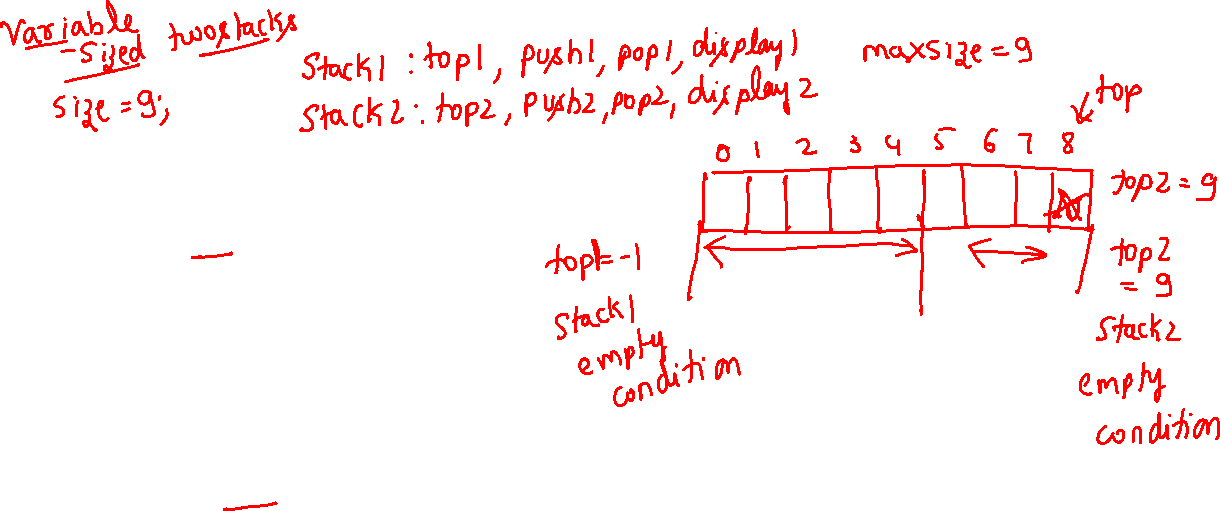 Variable
-Sized twostacks
size = 9;
Stack1 : top1, push1, pop1, display1
Stack2 : top2, push2, pop2, display2
maxsize = 9
top
0 1 2 3 4 5 6 7 8
top2 = 9
top1 = -1
Stack1
empty
condition
top2
= 9
Stack2
empty
condition